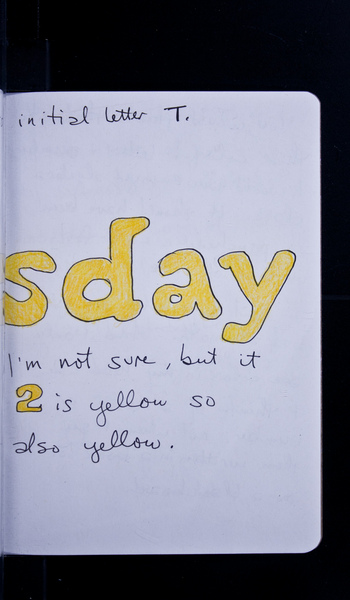 initial letter T.
sday
I'm not sure, but it
2 is yellow so
also yellow.